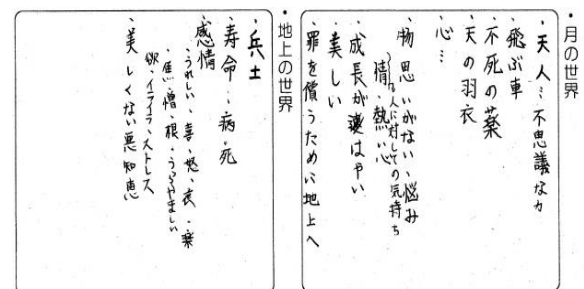 ・月の世界
・天人…不思議な力
・飛ぶ車
・不死の薬
・天の羽衣
・心…
・物思いがない、悩み
情、熱い心
人に対しての気持ち
・成長が速はやい
・美しい
・罪を償うために地上へ
・地上の世界
・兵士
・寿命…病・死
・感情
・うれしい、喜、怒、哀、楽
・悪、憎、恨、うらやましい
欲、イライラ、ストレス
・美しくない悪知恵